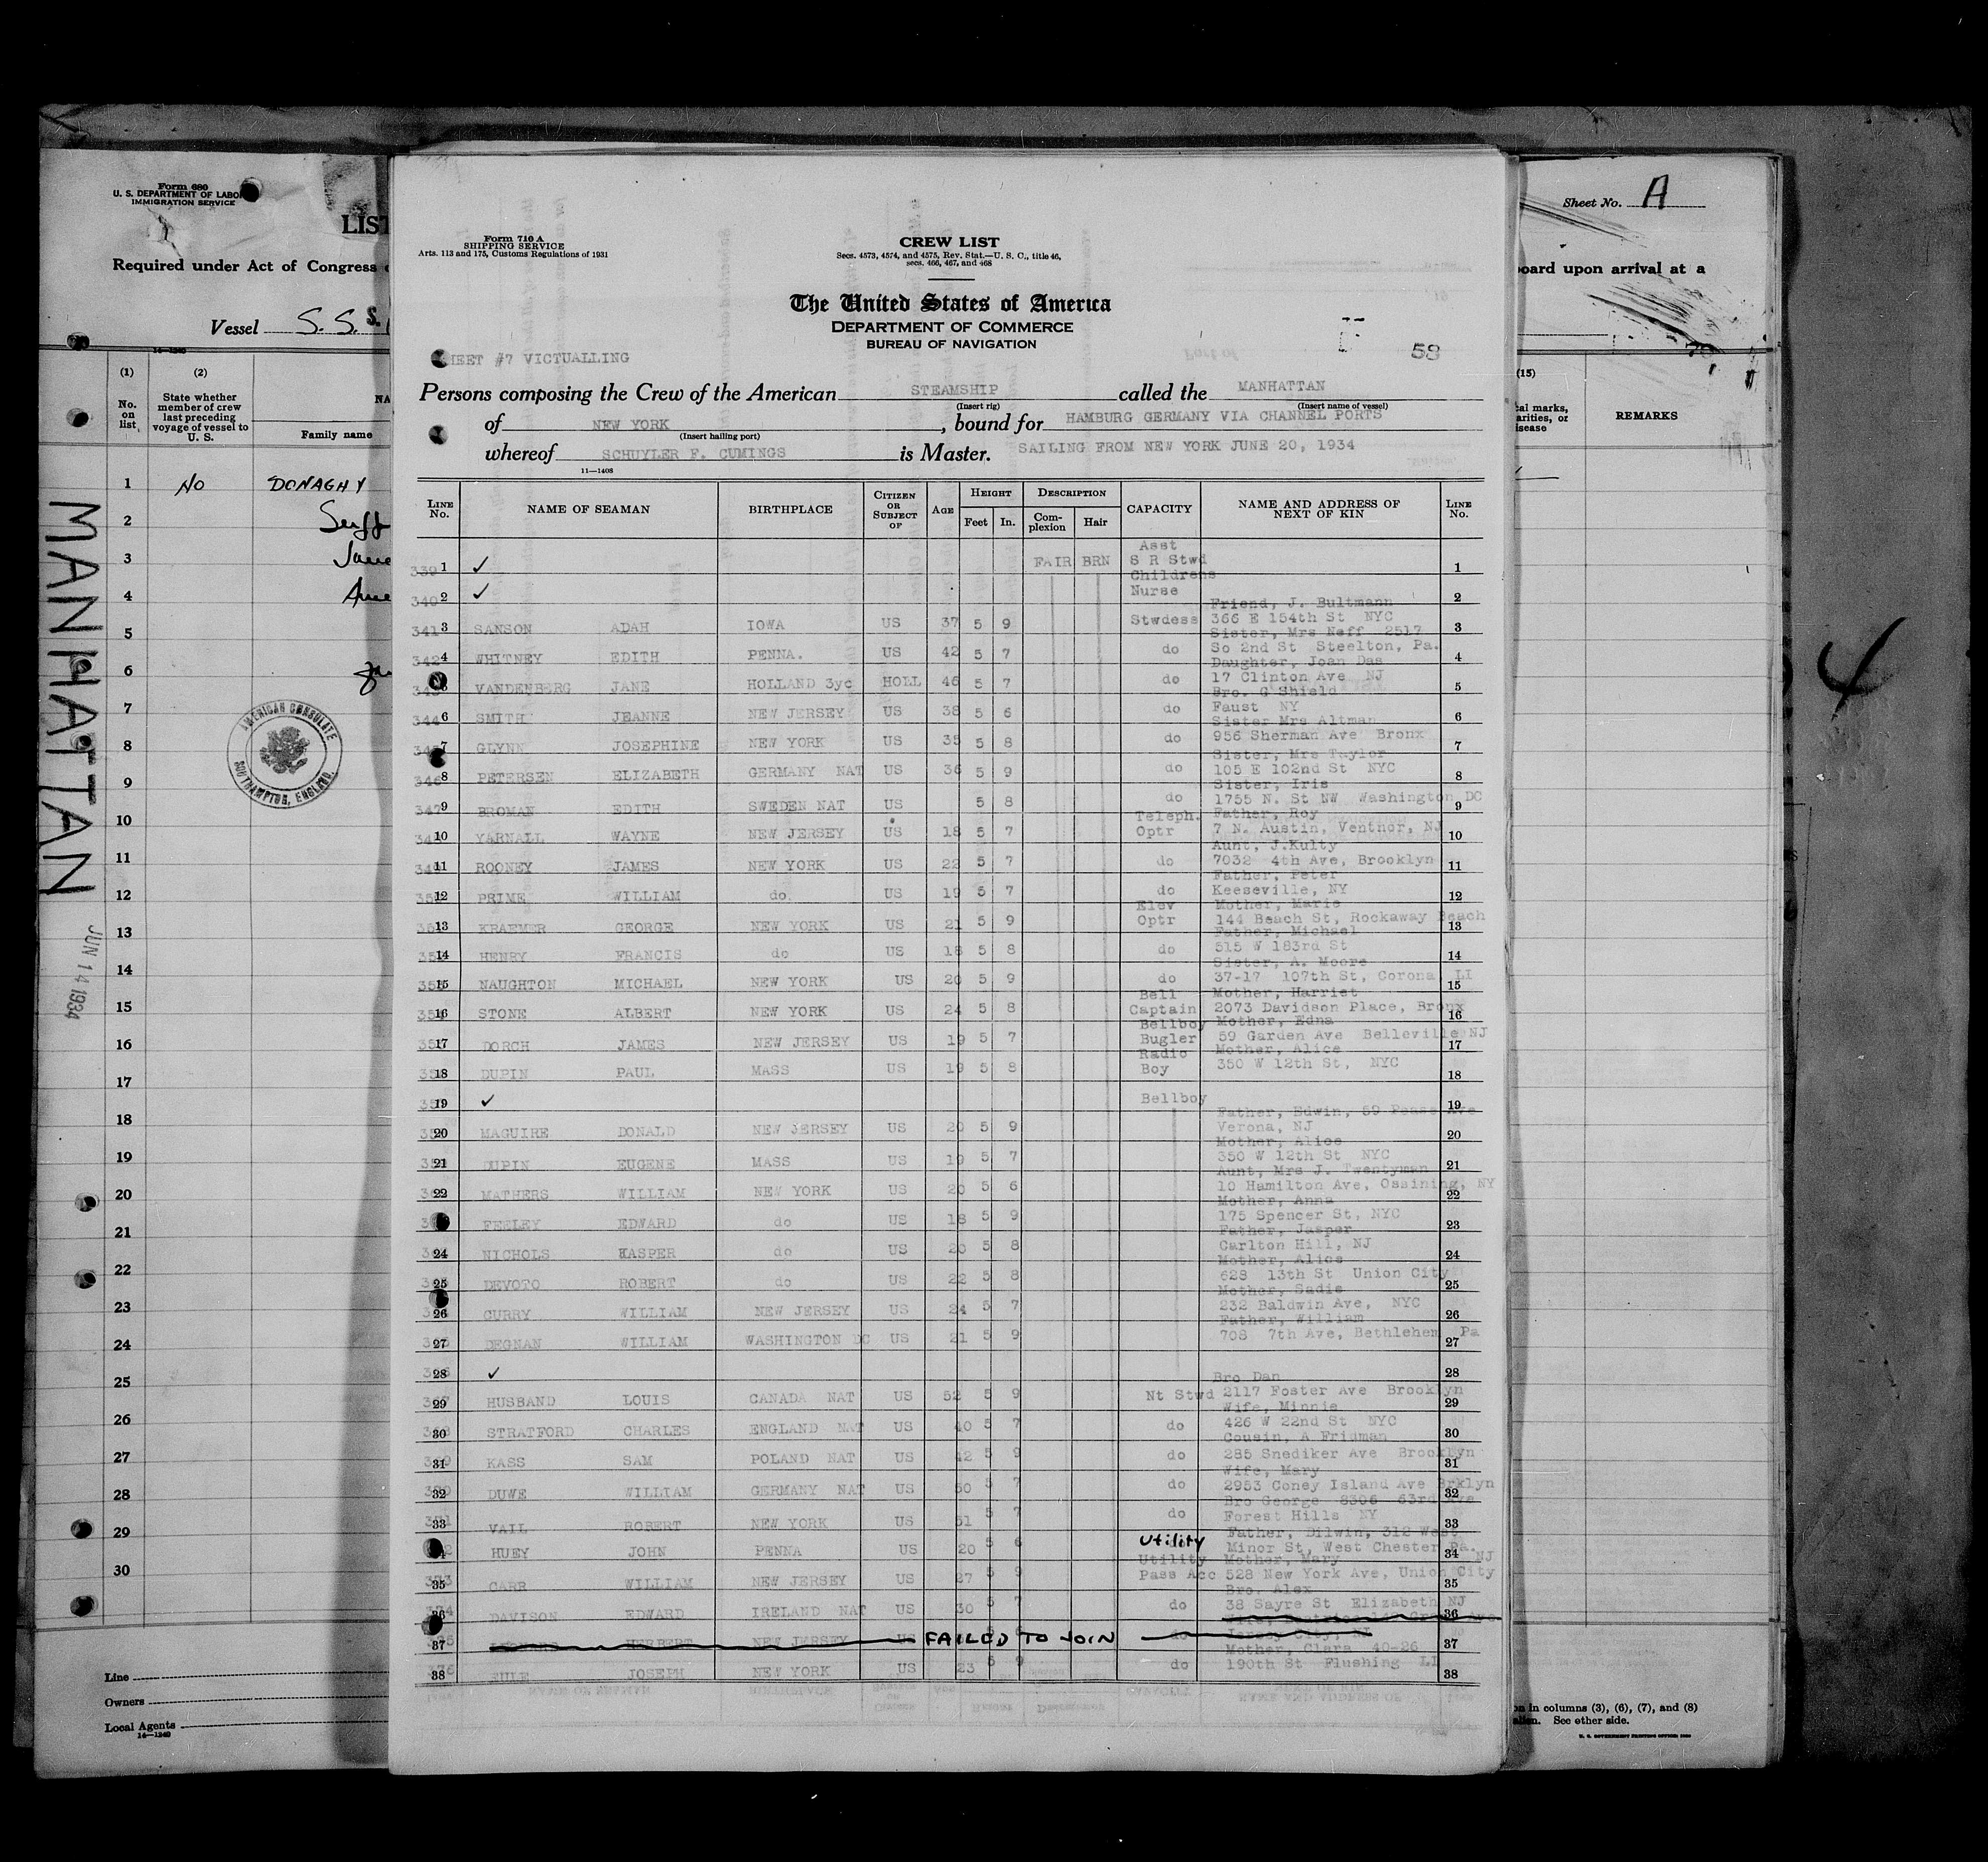 Form 680
U. S. DEPARTMENT OF LABO
IMMIGRATION SERVICE
LIST
Required under Act of Congress
Vessel S. S. S.
(1) (2)
No. on list
State whether member of crew last preceding voyage of vessel to U. S.
NA
Family name
1 NO DONAGHY
2
3
4
5
6
7
8
9
10
11
12
13
14
15
16
17
18
19
20
21
22
23
24
25
26
27
28
29
30
AMERICAN CONSULATE
SOUTHAMPTON, ENGLAND.
MANHATTAN
JUN 14 1934
Line
Owners
Local Agents
14—1240
Form 710 A
SHIPPING SERVICE
Arts. 113 and 175, Customs Regulations of 1931
CREW LIST
Secs. 4573, 4574, and 4575, Rev. Stat.—U. S. C., title 46,
secs. 466, 467, and 468
The United States of America
DEPARTMENT OF COMMERCE
BUREAU OF NAVIGATION
58
HEET #7 VICTUALLING
Persons composing the Crew of the American STEAMSHIP called the MANHATTAN
(Insert rig) (Insert name of vessel)
of NEW YORK, bound for HAMBURG GERMANY VIA CHANNEL PORTS
(Insert hailing port)
whereof SCHUYLER F. CUMINGS is Master. SAILING FROM NEW YORK JUNE 20, 1934
11—1408
LINE No. NAME OF SEAMAN BIRTHPLACE CITIZEN OR SUBJECT OF AGE HEIGHT Feet In. DESCRIPTION Complexion Hair CAPACITY NAME AND ADDRESS OF NEXT OF KIN LINE No.
339 1 ✓ FAIR BRN Asst S R Stwd 1
340 2 ✓ Childrens Nurse 2
341 3 SANSON ADAH IOWA US 37 5 9 Stwdess Friend, J. Bultmann 366 E 154th St NYC 3
342 4 WHITNEY EDITH PENNA. US 42 5 7 do Sister, Mrs Neff 2517 So 2nd St Steelton, Pa. 4
VANDENBERG JANE HOLLAND 3yc HOLL 46 5 7 do Daughter, Joan Das 17 Clinton Ave NJ 5
344 6 SMITH JEANNE NEW JERSEY US 38 5 6 do Bro. G Shield Faust NY 6
7 GLYNN JOSEPHINE NEW YORK US 35 5 8 do Sister Mrs Altman 956 Sherman Ave Bronx 7
346 8 PETERSEN ELIZABETH GERMANY NAT US 36 5 9 do Sister, Mrs Taylor 105 E 102nd St NYC 8
347 9 BROMAN EDITH SWEDEN NAT US 5 8 do Sister, Iris 1755 N. St NW Washington DC 9
10 YARNALL WAYNE NEW JERSEY US 18 5 7 Teleph. Optr Father, Roy 7 N. Austin, Ventnor, NJ 10
11 ROONEY JAMES NEW YORK US 22 5 7 do Aunt, J.Kulty 7032 4th Ave, Brooklyn 11
12 PRIME WILLIAM do US 19 5 7 do Father, Peter Keeseville, NY 12
13 KRAEMER GEORGE NEW YORK US 21 5 9 Elev Optr Mother, Marie 144 Beach St, Rockaway Beach 13
14 HENRY FRANCIS do US 18 5 8 do Father, Michael 515 W 183rd St 14
15 NAUGHTON MICHAEL NEW YORK US 20 5 9 do Sister, A. Moore 37-17 107th St, Corona, LI 15
16 STONE ALBERT NEW YORK US 24 5 8 Bell Captain Mother, Harriet 2073 Davidson Place, Bronx 16
17 DORCH JAMES NEW JERSEY US 19 5 7 Bellboy Bugler Mother, Edna 59 Garden Ave Belleville NJ 17
18 DUPIN PAUL MASS US 19 5 8 Radio Boy Mother, Alice 350 W 12th St, NYC 18
19 ✓ Bellboy 19
20 MAGUIRE DONALD NEW JERSEY US 20 5 9 Father, Edwin, 59 Pease Ave Verona, NJ 20
21 DUPIN EUGENE MASS US 19 5 7 Mother, Alice 350 W 12th St NYC 21
22 MATHERS WILLIAM NEW YORK US 20 5 6 Aunt, Mrs J. Twentyman 10 Hamilton Ave, Ossining, NY 22
FEELEY EDWARD do US 18 5 9 Mother, Anna 175 Spencer St, NYC 23
24 NICHOLS KASPER do US 20 5 8 Father, Jasper Carlton Hill, NJ 24
25 DEVOTO ROBERT do US 22 5 8 Mother, Alice 628 13th St Union City 25
26 CURRY WILLIAM NEW JERSEY US 24 5 7 Mother, Sadie 232 Baldwin Ave, NYC 26
27 DEGNAN WILLIAM WASHINGTON DC US 21 5 9 Father, William 708 7th Ave, Bethlehem Pa 27
28 ✓ 28
29 HUSBAND LOUIS CANADA NAT US 52 5 9 Nt Stwd Bro Dan 2117 Foster Ave Brooklyn 29
30 STRATFORD CHARLES ENGLAND NAT US 40 5 7 do Wife, Minnie 426 W 22nd St NYC 30
31 KASS SAM POLAND NAT US 42 5 9 do Cousin, A Fridman 285 Snediker Ave Brooklyn 31
32 DUWE WILLIAM GERMANY NAT US 50 5 7 do Wife, Mary 2953 Coney Island Ave Brklyn 32
33 VAIL ROBERT NEW YORK US 51 5 7 do Bro George 8306 63rd Ave Forest Hills NY 33
HUEY JOHN PENNA US 20 5 6 Utility Father, Dilwin, 312 West Minor St, West Chester Pa. 34
35 CARR WILLIAM NEW JERSEY US 27 5 9 Utility Pass Acc Mother, Mary 528 New York Ave, Union City NJ 35
36 DAVISON EDWARD IRELAND NAT US 30 5 7 do Bro. Alex 38 Sayre St Elizabeth NJ 36
37 HERBERT NEW JERSEY US FAILED TO JOIN do Jersey City, NJ 37
38 EULE JOSEPH NEW YORK US 23 5 9 do Mother, Clara 40-26 190th St Flushing LI 38
Sheet No. A
board upon arrival at a
(15)
REMARKS
in columns (3), (6), (7), and (8)
alien. See other side.
U. S. GOVERNMENT PRINTING OFFICE
4